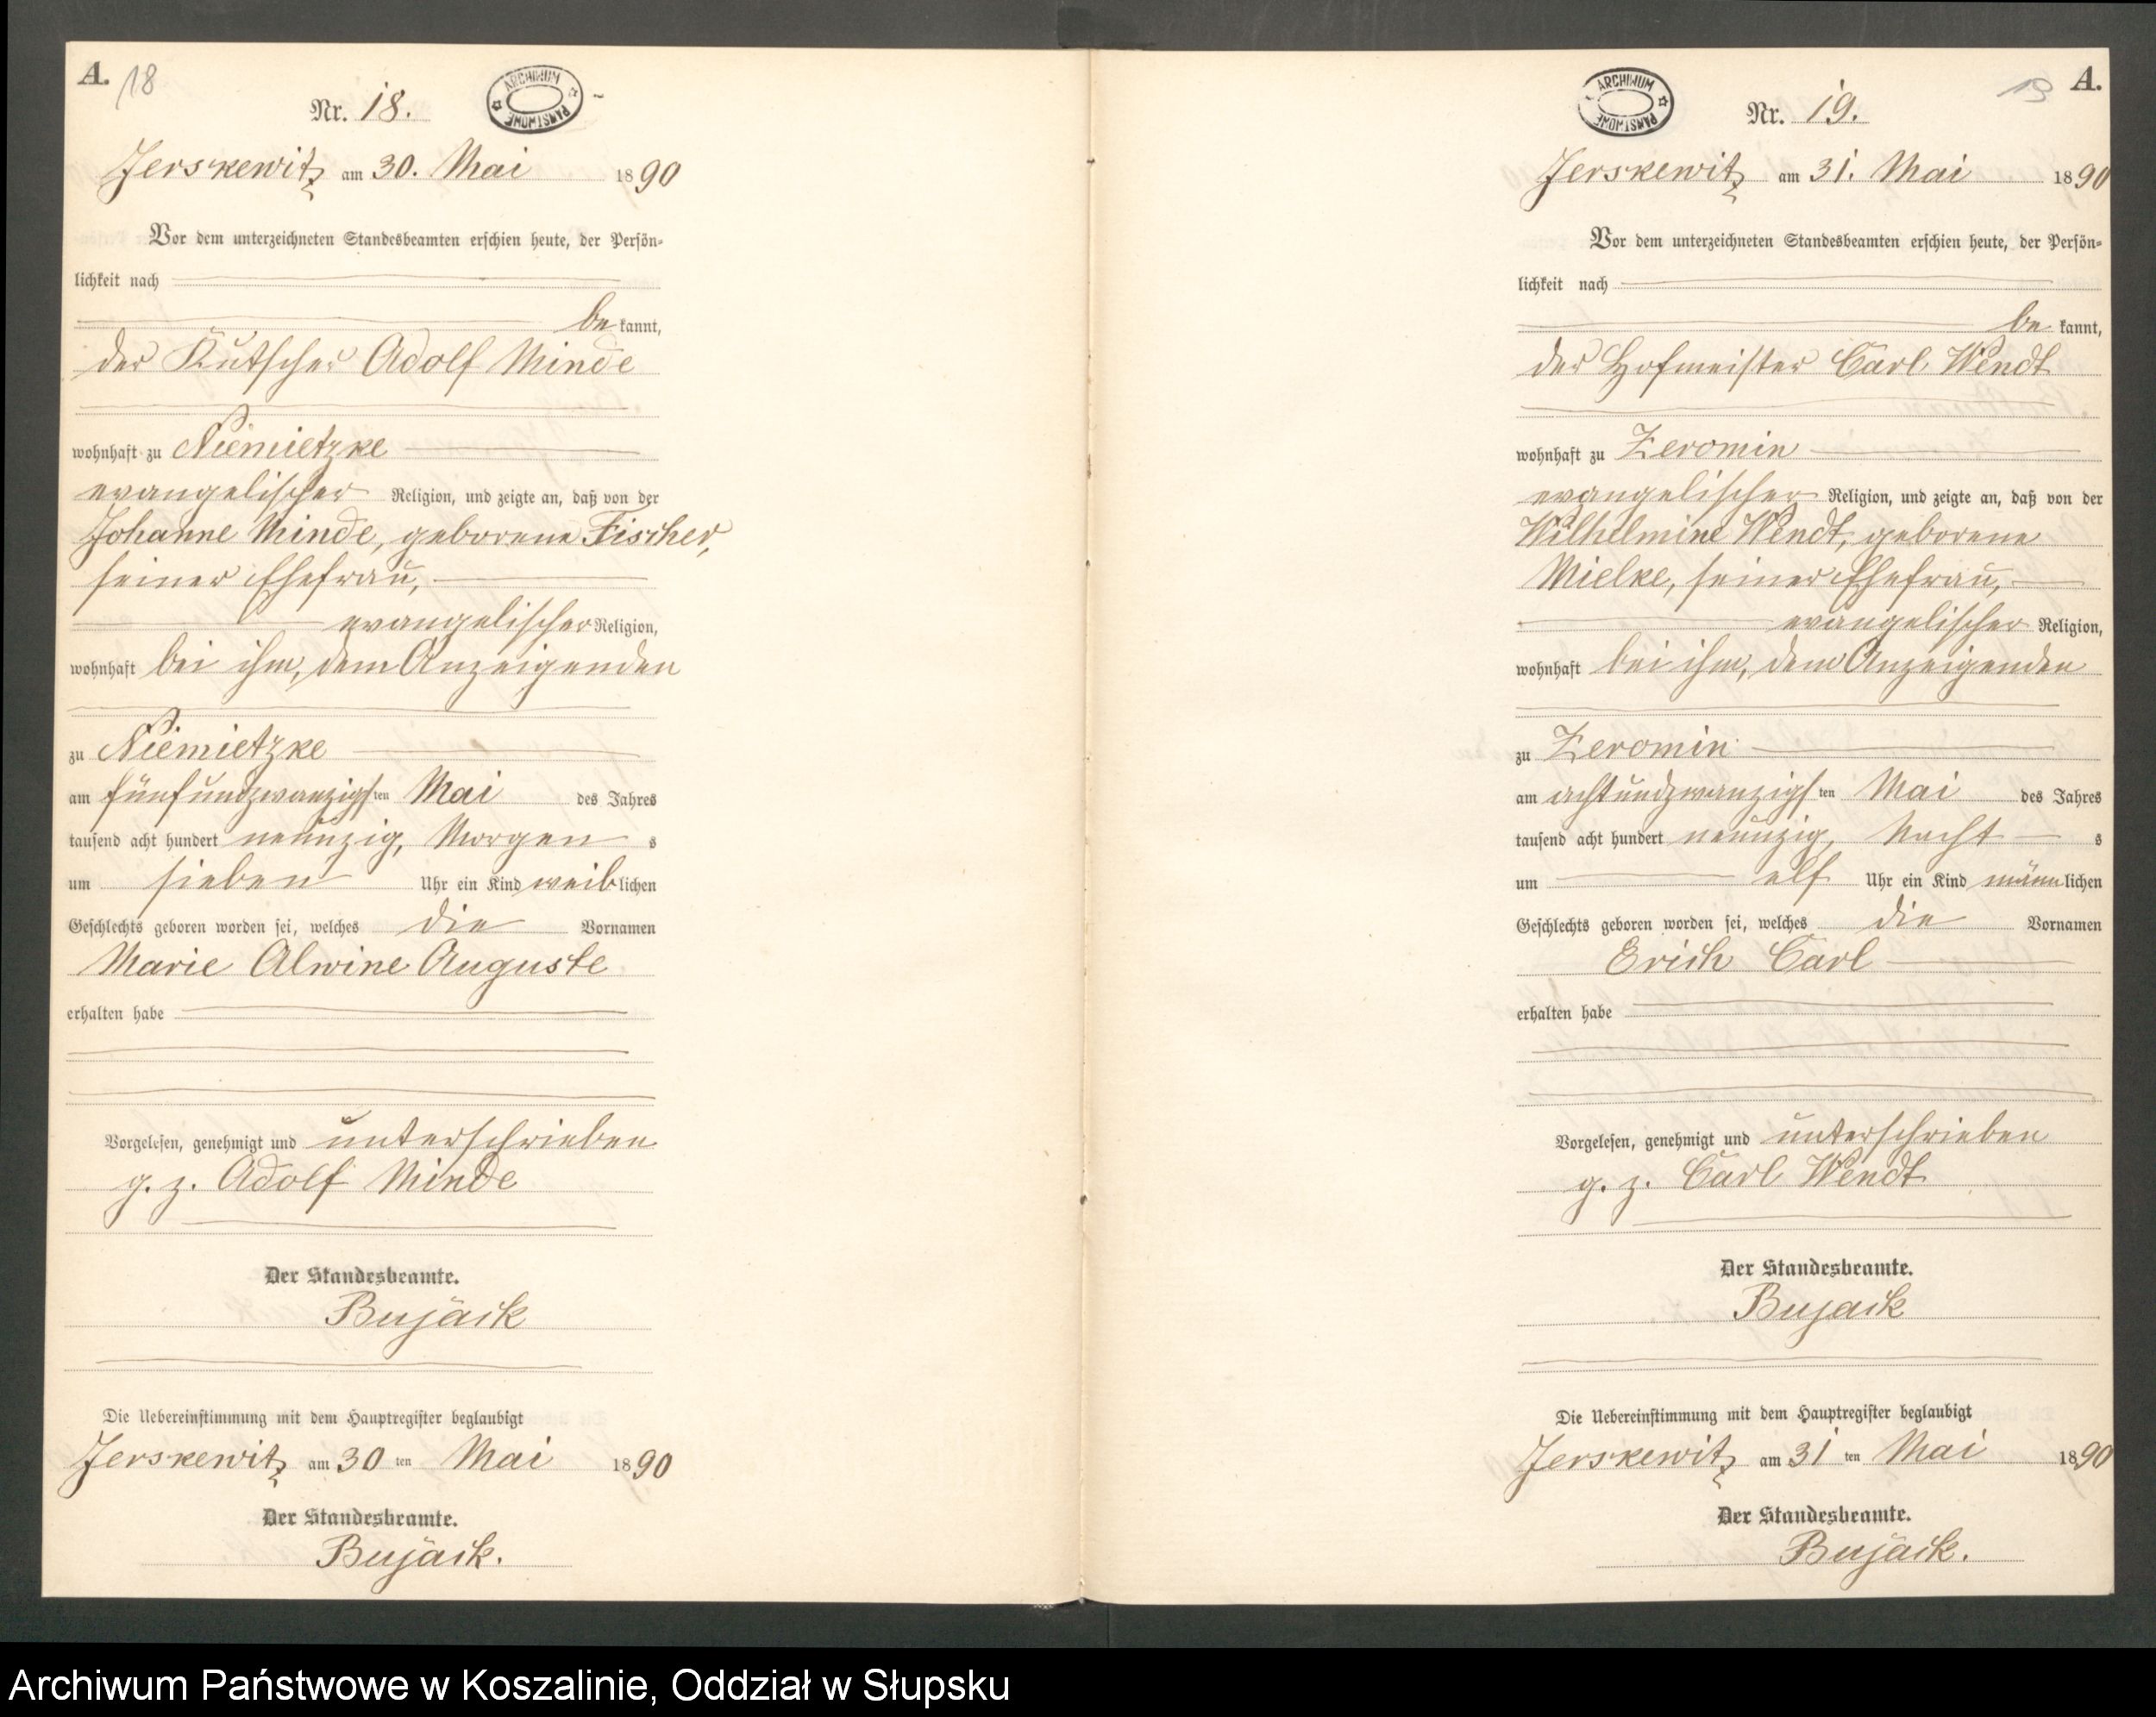 A.
18
Nr. 18.
ARCHIWUM PAŃSTWOWE
Jerskewitz am 30. Mai 1890
Vor dem unterzeichneten Standesbeamten erschien heute, der Persön-
lichkeit nach
be kannt,
der Kutscher Adolf Minde
wohnhaft zu Niemietzke
evangelischer Religion, und zeigte an, daß von der
Johanne Minde, geborene Fischer,
seiner Ehefrau,
evangelischer Religion,
wohnhaft bei ihm, dem Anzeigenden
zu Niemietzke
am fünfundzwanzigsten Mai des Jahres
tausend acht hundert neunzig, Morgen s
um sieben Uhr ein Kind weiblichen
Geschlechts geboren worden sei, welches die Vornamen
Marie Alwine Auguste
erhalten habe
Vorgelesen, genehmigt und unterschrieben
g. z. Adolf Minde
Der Standesbeamte.
Bujack
Die Uebereinstimmung mit dem Hauptregister beglaubigt
Jerskewitz am 30 ten Mai 1890
Der Standesbeamte.
Bujack.
19
A.
ARCHIWUM PAŃSTWOWE
Nr. 19.
Jerskewitz am 31. Mai 1890
Vor dem unterzeichneten Standesbeamten erschien heute, der Persön-
lichkeit nach
be kannt,
der Hofmeister Carl Wendt
wohnhaft zu Zeromin
evangelischer Religion, und zeigte an, daß von der
Wilhelmine Wendt, geborene
Mielke, seiner Ehefrau,
evangelischer Religion,
wohnhaft bei ihm, dem Anzeigenden
zu Zeromin
am achtundzwanzigsten Mai des Jahres
tausend acht hundert neunzig, Nacht s
um elf Uhr ein Kind männlichen
Geschlechts geboren worden sei, welches die Vornamen
Erich Carl
erhalten habe
Vorgelesen, genehmigt und unterschrieben
g. z. Carl Wendt
Der Standesbeamte.
Bujack
Die Uebereinstimmung mit dem Hauptregister beglaubigt
Jerskewitz am 31 ten Mai 1890
Der Standesbeamte.
Bujack.
Archiwum Państwowe w Koszalinie, Oddział w Słupsku